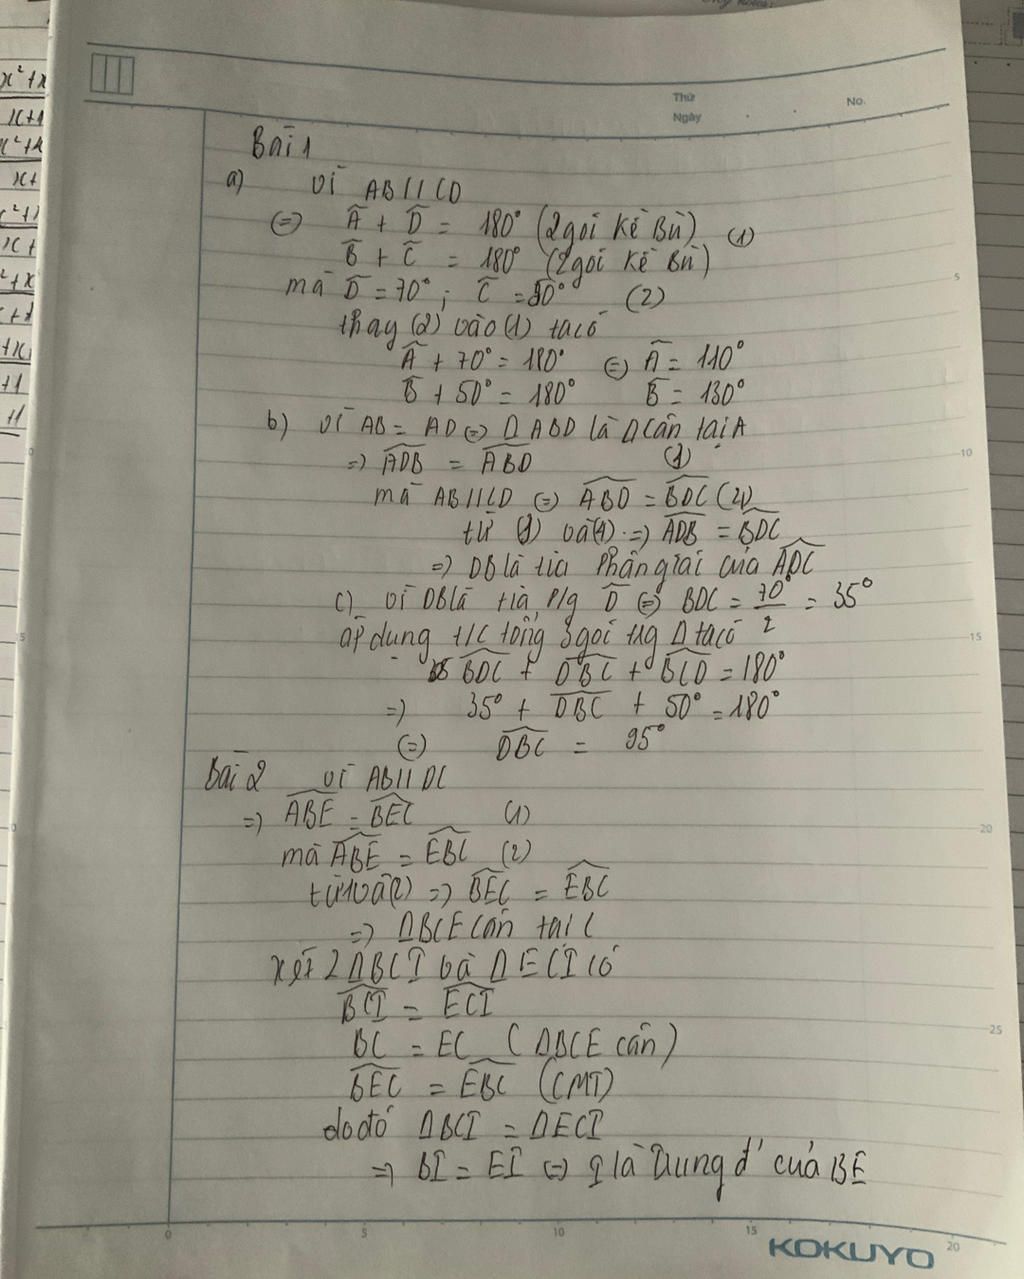 x²+x
x+1
x²+x
x+
x²+
x+
²+x
x+1
+x
+1
+1
Thứ
Ngày
No.
Bài 1
a) Vì AB//CD
(=) Â + D̂ = 180° (2 goi kề Bù) (1)
B̂ + Ĉ = 180° (2 goi kề Bù)
mà D̂ = 70° ; Ĉ = 50° (2)
thay (2) vào (1) ta có
Â + 70° = 180° (=) Â = 110°
B̂ + 50° = 180° B̂ = 130°
b) Vì AB = AD (=) Δ ABD là Δ cân tại A
=) ADB = ABD (1)
mà AB//CD (=) ABD = BDC (2)
từ (1) và (2) =) ADB = BDC
=) DB là tia Phân giai của ADC
c) Vì DB là tia p/g D̂ (=) BDC = 70°/2 = 35°
áp dung t/c tổng 3 goi tig Δ ta có
BDC + DBC + BCD = 180°
=) 35° + DBC + 50° = 180°
(=) DBC = 95°
Bài 2 Vì AB//DC
=) ABE = BEC (1)
mà ABE = EBC (2)
từ 1 và (2) =) BEC = EBC
=) ΔBCE cân tai C
xét 2 ΔBCI và Δ ECI có
BCI = ECI
BC = EC (ΔBCE cân)
BEC = EBC (CMT)
do đó ΔBCI = ΔECI
=) BI = EI (=) I là Trung đ' của BE
5
10
15
20
25
0 5 10 15 20
KOKUYO